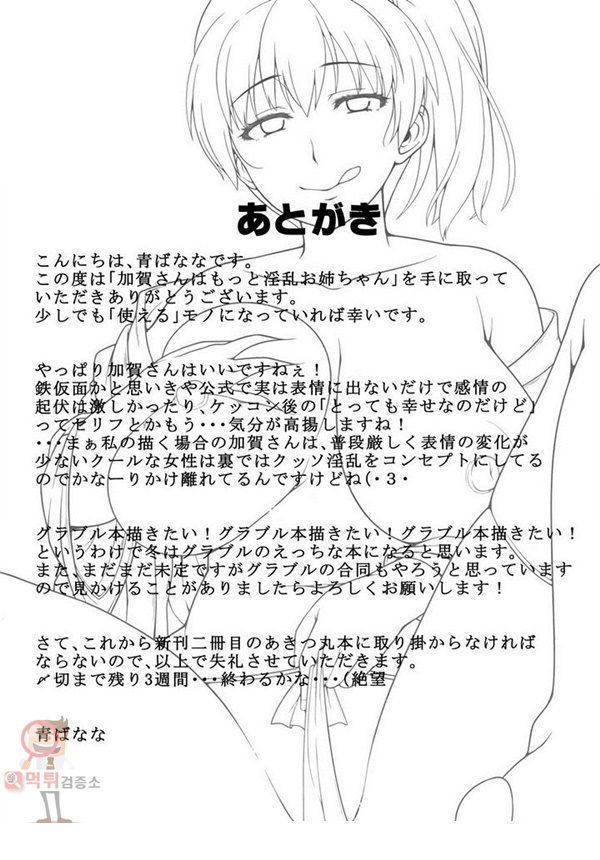 あとがき
こんにちは、青ばななです。
この度は「加賀さんはもっと淫乱お姉ちゃん」を手に取って
いただきありがとうございます。
少しでも「使える」モノになっていれば幸いです。
やっぱり加賀さんはいいですねぇ！
鉄仮面かと思いきや公式で実は表情に出ないだけで感情の
起伏は激しかったり、ケッコン後の「とっても幸せなのだけど」
ってセリフとかもう・・・気分が高揚しますね！
・・・まぁ私の描く場合の加賀さんは、普段厳しく表情の変化が
少ないクールな女性は裏ではクッソ淫乱をコンセプトにしてる
のでかなーりかけ離れてるんですけどね(・３・
グラブル本描きたい！グラブル本描きたい！グラブル本描きたい！
というわけで冬はグラブルのえっちな本になると思います。
また、まだまだ未定ですがグラブルの合同もやろうと思っています
ので見かけることがありましたらよろしくお願いします！
さて、これから新刊二冊目のあきつ丸本に取り掛からなければ
ならないので、以上で失礼させていただきます。
〆切まで残り3週間・・・終わるかな・・・(絶望
青ばなな
먹튀검증소